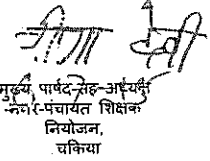 वीणा देवी
मुख्य पार्षद-सह-अध्यक्ष
नगर-पंचायत शिक्षक
नियोजन,
चकिया